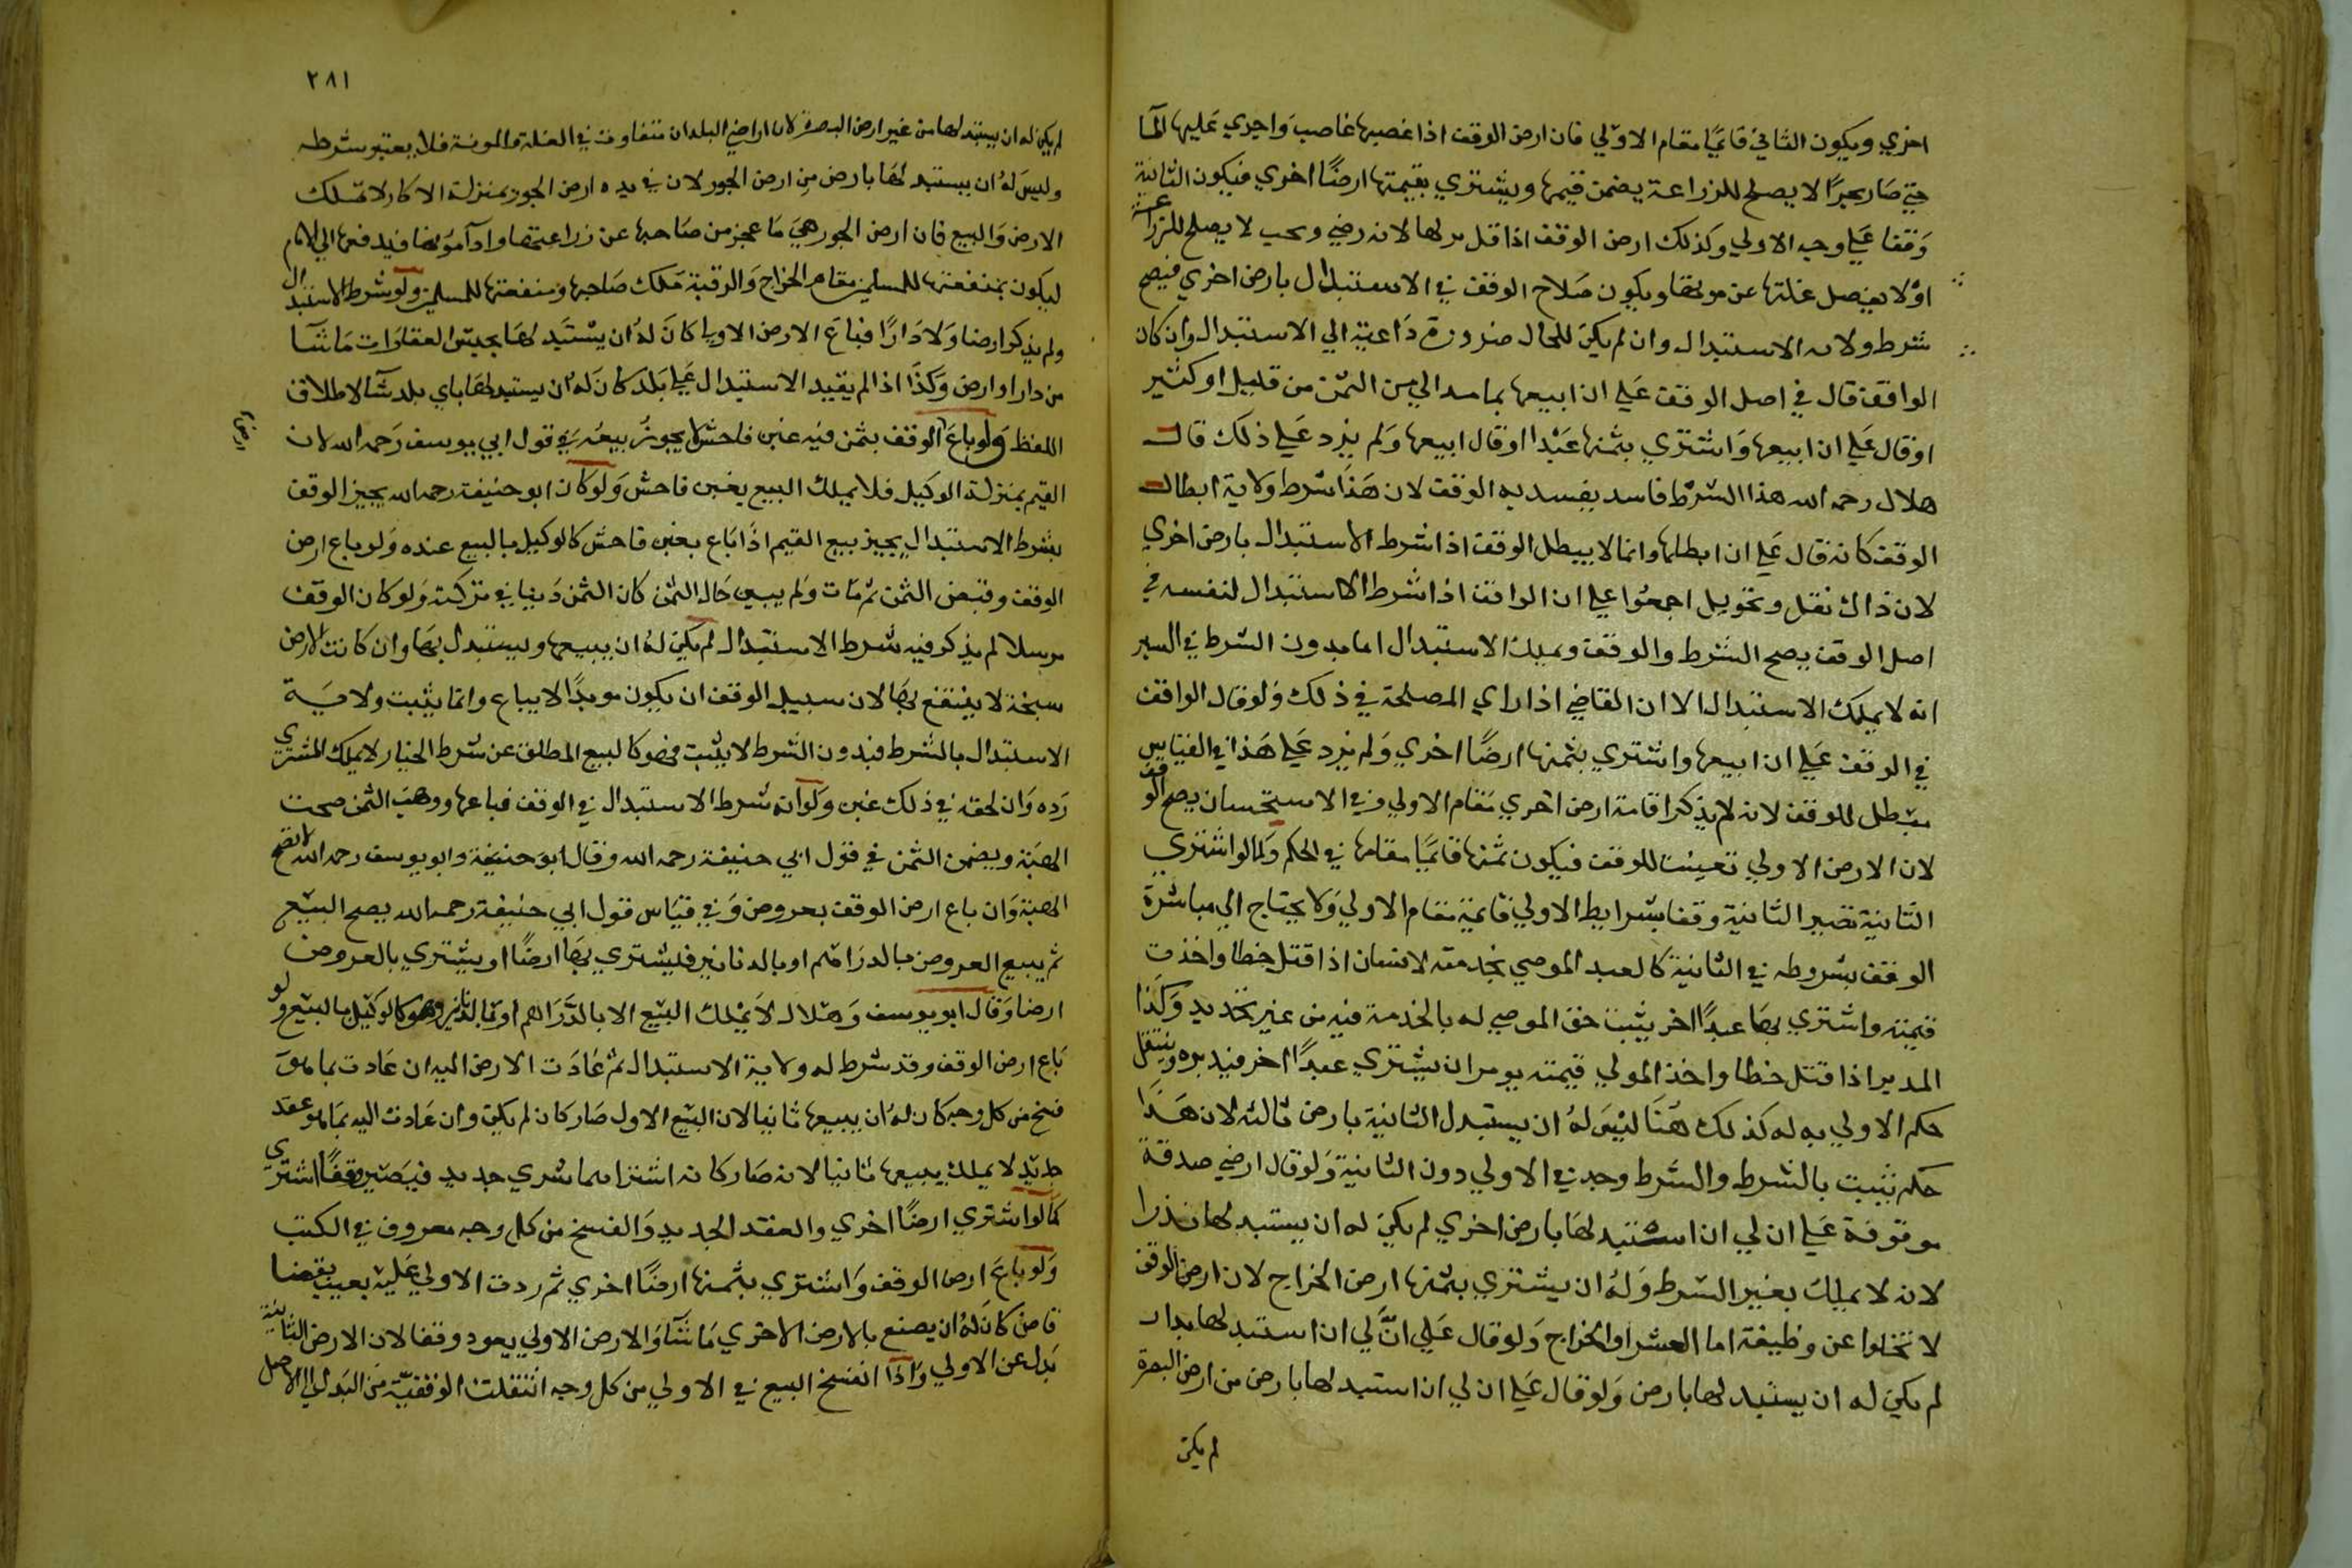 اخري ويكون الثاني قائمًا مقام الاولي فان ارض الوقف اذا غصبها غاصب واجري عليها المآ
حتي صار بحرًا لا يصلح للزراعة يضمن قيمتها ويشتري بقيمتها ارضًا اخري فيكون الثانية
وقفا علي وجه الاولي وكذلك ارض الوقف اذا قل نزلها لانه وبحيث لا يصلح للزراعة
او لا يفضل غلتها عن مونتها ويكون صلاح الوقف في الاستبدال بارض اخري فيصح
شرط ولاية الاستبدال وان لم يكن للحال ضرورة داعية الي الاستبدال وان كان
الواقف قال في اصل الوقف علي ان ابيعها بما بدا لي من الثمن من قليل او كثير
او قال علي ان ابيعها واشتري بثمنها عبدا او قال ابيعها ولم يزد علي ذلك قال
هلال رحمه الله هذا الشرط فاسد يفسد به الوقف لان هذا شرط ولاية ابطال
الوقف كانه قال علي ان ابطلها وانما لا يبطل الوقف اذا شرط الاستبدال بارض اخري
لان ذاك نقل وتحويل اجمعوا علي ان الواقف اذا شرط الاستبدال لنفسه في
اصل الوقف يصح الشرط والوقف ويملك الاستبدال اما بدون الشرط في السير
انه لا يملك الاستبدال الا ان القاضي اذا راي المصلحة في ذلك ولو قال الواقف
في الوقف علي ان ابيعها واشتري بثمنها ارضًا اخري ولم يزد علي هذا في القياس
يبطل للوقف لانه لم يذكر اقامة ارض اخري مقام الاولي وفي الاستحسان يصح الوقف
لان الارض الاولي تعينت للوقف فيكون ثمنها قائمًا مقامها في الحكم وكما لو اشتري
الثانية تصير الثانية وقفا بشرايط الاولي قائمة مقام الاولي ولا يحتاج الي مباشرة
الوقف بشروطه في الثانية كالعبد الموصي بخدمته لانسان اذا قتل خطا واخذت
قيمته واشتري بها عبدًا اخر يثبت حق الموصي له بالخدمة فيه من غير تجديد وكذا
المدبر اذا قتل خطا واخذ المولي قيمته يومر ان يشتري عبدًا اخر فيدبره وينتقل
حكم الاولي به له كذلك هنا ليس له ان يستبدل الثانية بارض ثالثه لان هذا
حكم يثبت بالشرط والشرط وجد في الاولي دون الثانية ولو قال ارضي صدقة
موقوفة علي ان لي ان استبدلها بارض اخري لم يكن له ان يستبدلها
لانه لا يملك بغير الشرط وله ان يشتري بثمنها ارض الخراج لان ارض الوقف
لا تخلوا عن وظيفة اما العشر او الخراج ولو قال علي انّ لي ان استبدلها بدار
لم يكن له ان يستبدلها بارض ولو قال علي ان لي ان استبدلها بارض من ارض البصرة
لم يكن
٢٨١
لم يكن له ان يستبدلها من غير ارض البصرة لان اراضي البلدان متفاوت في الغلة والمونة فلا يعتبر شرطه
وليس له ان يستبدلها بارض من ارض الجور لان في يده ارض الجور بمنزلة الاكار لا تملك
الارض والبيع فان ارض الجور هي ما عجز من صاحبها عن زراعتها وادآ مؤنها فيدفعها الي الامام
ليكون منفعتها للمسلمين مقام الخراج والرقبة ملك صاحبها ومنفعتها للمسلمين ولو شرط الاستبدال
ولم يذكر ارضا ولا دارًا فباع الارض الاولي كان له ان يستبدلها بجنس العقارات ما شآ
من دار او ارض وكذا اذا لم يقيد الاستبدال علي بلد كان له ان يستبدلها باي بلد شآ لاطلاق
اللفظ ولو باع الوقف بثمن فيه غبن فاحش لا يجوز بيعه في قول ابي يوسف رحمه الله لان
القيم بمنزلة الوكيل فلا يملك البيع بغبن فاحش ولو كان ابو حنيفة رحمه الله يجيز الوقف
بشرط الاستبدال يجيز بيع القيم اذا باع بغبن فاحش كالوكيل بالبيع عنده ولو باع ارض
الوقف وقبض الثمن ثم مات ولم يبين حال الثمن كان الثمن دينا في تركته ولو كان الوقف
مرسلا لم يذكر فيه شرط الاستبدال لم يكن له ان يبيعها ويستبدل بها وان كانت الارض
سبخة لا ينتفع بها لان سبيل الوقف ان يكون موبدًا لا يباع وانما يثبت ولاية
الاستبدال بالشرط فبدون الشرط لا يثبت فهو كالبيع المطلق عن شرط الخيار لا يملك المشتري
رده وان لحقه في ذلك غبن ولو انه شرط الاستبدال في الوقف فباعها ووهب الثمن صحت
الهبة ويضمن الثمن في قول ابي حنيفة رحمه الله وقال ابو حنيفة وابو يوسف رحمه الله لا تصح
الهبة وان باع ارض الوقف بعروض وفي قياس قول ابي حنيفة رحمه الله يصح البيع
ثم يبيع العروض بالدراهم او بالدنانير فيشتري بها ارضًا او يشتري بالعروض
ارضا وقال ابو يوسف وهلال لا يملك البيع الا بالدراهم او بالدنانير وهو كالوكيل بالبيع ولو
باع ارض الوقف وقد شرط له ولاية الاستبدال ثم عادت الارض اليه ان عادت بما هو
فسخ من كل وجه كان له ان يبيعها ثانيا لان البيع الاول صار كان لم يكن وان عادت اليه بما هو عقد
جديد لا يملك بيعها ثانيا لانه صار كانه اشتراها شري جديد فيصير وقفا اشتري
كما لو اشتري ارضًا اخري والعقد الجديد والفسخ من كل وجه معروف في الكتب
ولو باع ارض الوقف واشتري بثمنها ارضًا اخري ثم ردت الاولي عليه بعيب بقضا
قاض كان له ان يصنع بالارض الاخري ما شآ والارض الاولي يعود وقفا لان الارض الثانية
بدل عن الاولي واذا انفسخ البيع في الاولي من كل وجه انتقلت الوقفية من البدل الي الاصل